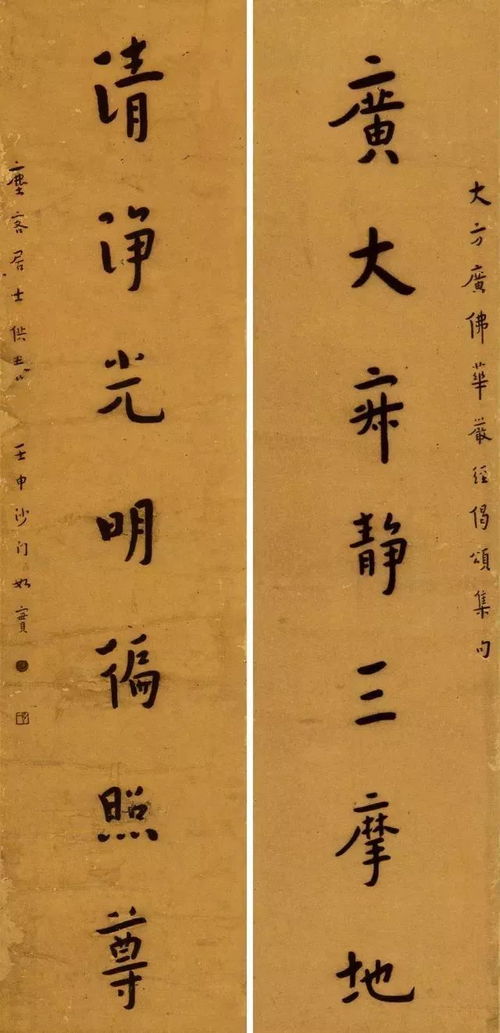 大方廣佛華嚴經偈頌集句
廣大㝜靜三摩地
清淨光明徧照尊
塵客居士供養
壬申沙門如實